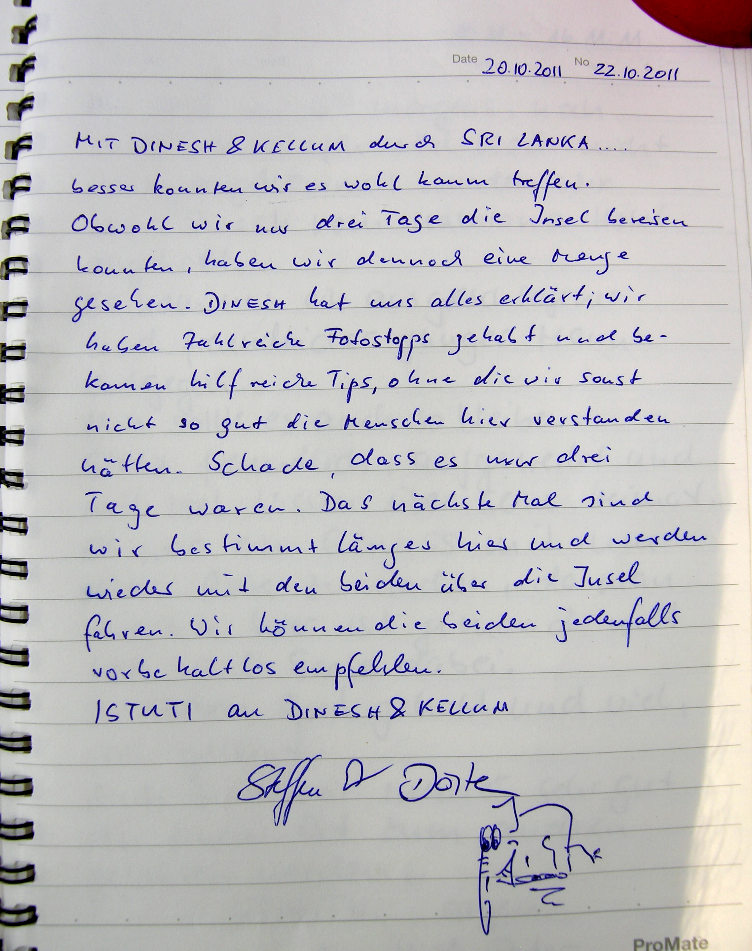 Date 20.10.2011 No 22.10.2011
MIT DINESH & KELLUM durch SRI LANKA....
besser konnten wir es wohl kaum treffen.
Obwohl wir nur drei Tage die Insel bereisen
konnten, haben wir dennoch eine Menge
gesehen. DINESH hat uns alles erklärt; wir
haben zahlreiche Fotostopps gehabt und be-
kamen hilfreiche Tips, ohne die wir sonst
nicht so gut die Menschen hier verstanden
hätten. Schade, dass es nur drei
Tage waren. Das nächste Mal sind
wir bestimmt länger hier und werden
wieder mit den beiden über die Insel
fahren. Wir können die beiden jedenfalls
vorbehaltlos empfehlen.
ISTUTI an DINESH & KELLUM
Steffen & Dörte
ProMate